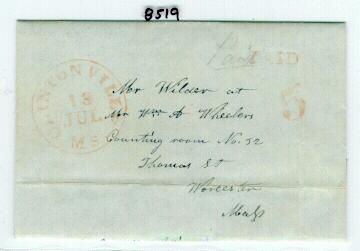 8519
Paid PAID
CLINTONVILLE
13
JUL
MS
5
Mr Wilder at
Mr Wm A Wheelers
Counting room No. 32
Thomas St
Worcester
Mass